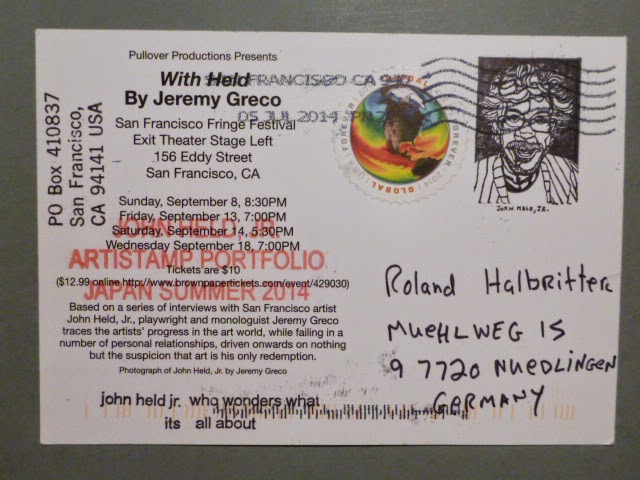 Pullover Productions Presents
With Held
By Jeremy Greco
San Francisco Fringe Festival
Exit Theater Stage Left
156 Eddy Street
San Francisco, CA
Sunday, September 8, 8:30PM
Friday, September 13, 7:00PM
Saturday, September 14, 5:30PM
Wednesday September 18, 7:00PM
Tickets are $10
($12.99 online http://www.brownpapertickets.com/event/429030)
Based on a series of interviews with San Francisco artist
John Held, Jr., playwright and monologuist Jeremy Greco
traces the artists' progress in the art world, while failing in a
number of personal relationships, driven onwards on nothing
but the suspicion that art is his only redemption.
Photograph of John Held, Jr. by Jeremy Greco
john held jr. who wonders what
its all about
PO Box 410837
San Francisco,
CA 94141 USA
JOHN HELD, JR.
ARTISTAMP PORTFOLIO
JAPAN SUMMER 2014
SAN FRANCISCO CA
05 JUL 2014 PM
GLOBAL
FOREVER
2014
GLOBAL
JOHN HELD, JR.
Roland Halbritter
MUEHLWEG 15
97720 NUEDLINGEN
GERMANY